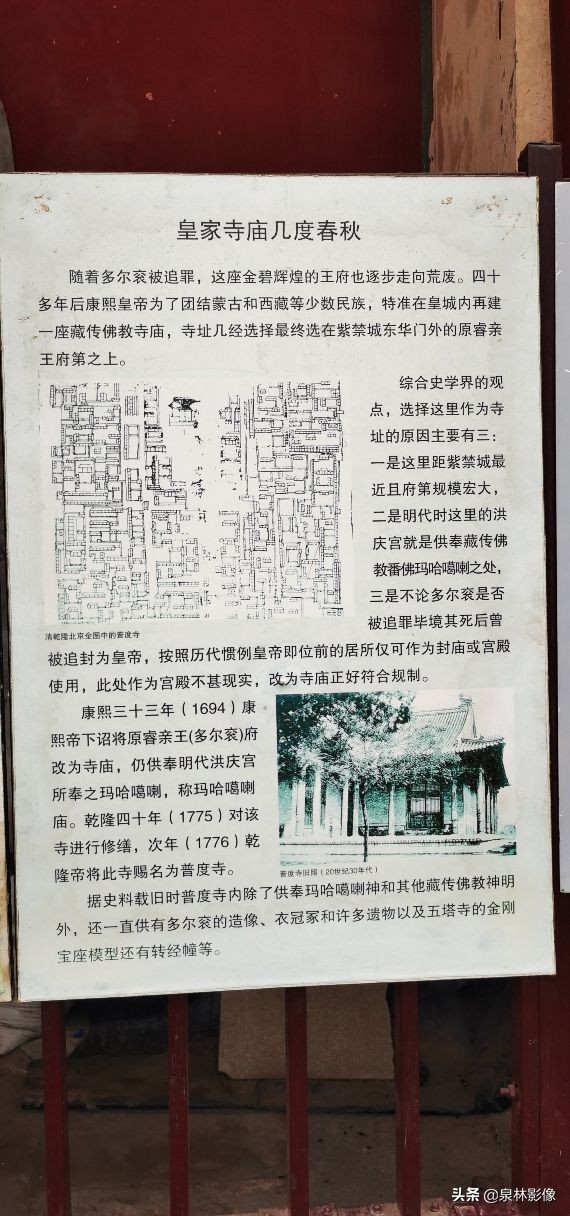 皇家寺庙几度春秋
随着多尔衮被追罪，这座金碧辉煌的王府也逐步走向荒废。四十
多年后康熙皇帝为了团结蒙古和西藏等少数民族，特准在皇城内再建
一座藏传佛教寺庙，寺址几经选择最终选在紫禁城东华门外的原睿亲
王府第之上。
综合史学界的观
点，选择这里作为寺
址的原因主要有三：
一是这里距紫禁城最
近且府第规模宏大，
二是明代时这里的洪
庆宫就是供奉藏传佛
教番佛玛哈噶喇之处，
三是不论多尔衮是否
被追罪毕境其死后曾
清乾隆北京全图中的普度寺
被追封为皇帝，按照历代惯例皇帝即位前的居所仅可作为封庙或宫殿
使用，此处作为宫殿不甚现实，改为寺庙正好符合规制。
康熙三十三年（1694）康
熙帝下诏将原睿亲王(多尔衮)府
改为寺庙，仍供奉明代洪庆宫
所奉之玛哈噶喇，称玛哈噶喇
庙。乾隆四十年（1775）对该
寺进行修缮，次年（1776）乾
隆帝将此寺赐名为普度寺。
普度寺旧照（20世纪30年代）
据史料载旧时普度寺内除了供奉玛哈噶喇神和其他藏传佛教神明
外，还一直供有多尔衮的造像、衣冠冢和许多遗物以及五塔寺的金刚
宝座模型还有转经幢等。
头条 @泉林影像